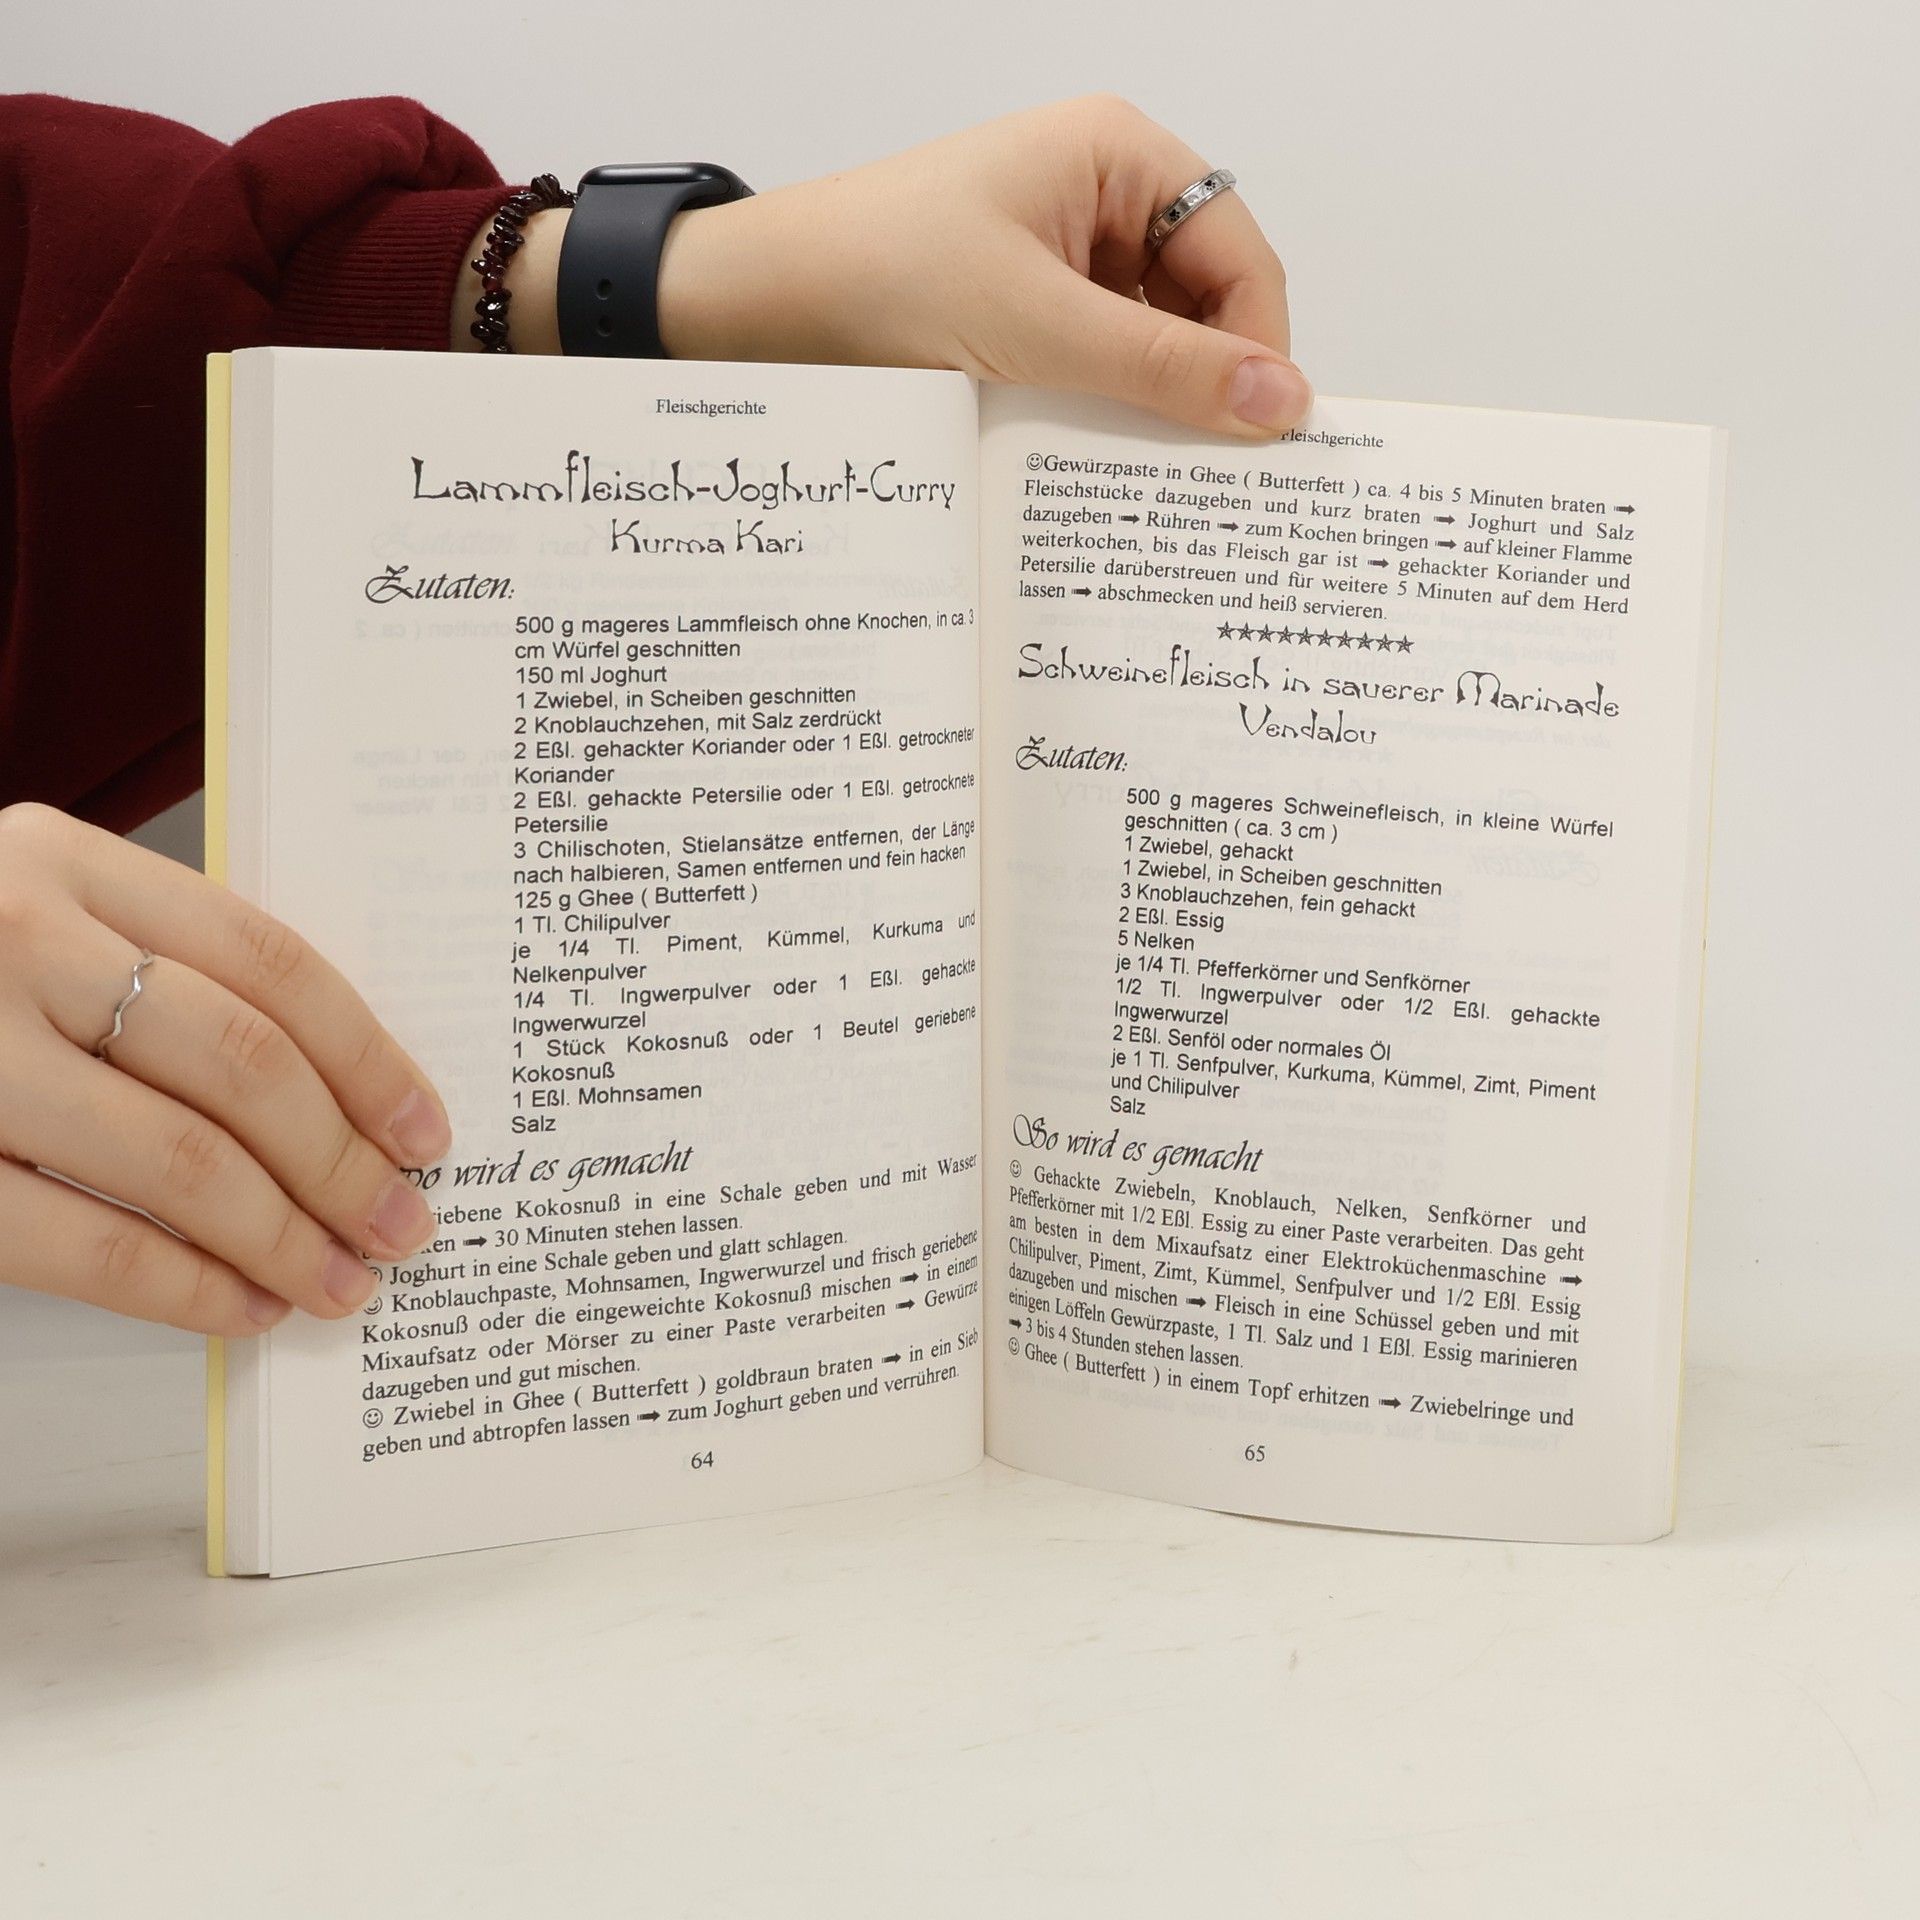 Fleischgerichte
Lammfleisch-Joghurt-Curry
Kurma Kari
Zutaten:
500 g mageres Lammfleisch ohne Knochen, in ca. 3
cm Würfel geschnitten
150 ml Joghurt
1 Zwiebel, in Scheiben geschnitten
2 Knoblauchzehen, mit Salz zerdrückt
2 Eßl. gehackter Koriander oder 1 Eßl. getrockneter
Koriander
2 Eßl. gehackte Petersilie oder 1 Eßl. getrocknete
Petersilie
3 Chilischoten, Stielansätze entfernen, der Länge
nach halbieren, Samen entfernen und fein hacken
125 g Ghee ( Butterfett )
1 Tl. Chilipulver
je 1/4 Tl. Piment, Kümmel, Kurkuma und
Nelkenpulver
1/4 Tl. Ingwerpulver oder 1 Eßl. gehackte
Ingwerwurzel
1 Stück Kokosnuß oder 1 Beutel geriebene
Kokosnuß
1 Eßl. Mohnsamen
Salz
So wird es gemacht
Kokosnuß in eine Schale geben und mit Wasser
➟ 30 Minuten stehen lassen.
☺ Joghurt in eine Schale geben und glatt schlagen.
☺ Knoblauchpaste, Mohnsamen, Ingwerwurzel und frisch geriebene
Kokosnuß oder die eingeweichte Kokosnuß mischen ➟ in einem
Mixaufsatz oder Mörser zu einer Paste verarbeiten ➟ Gewürze
dazugeben und gut mischen.
☺ Zwiebel in Ghee ( Butterfett ) goldbraun braten ➟ in ein Sieb
geben und abtropfen lassen ➟ zum Joghurt geben und verrühren.
64
Fleischgerichte
☺Gewürzpaste in Ghee ( Butterfett ) ca. 4 bis 5 Minuten braten ➟
Fleischstücke dazugeben und kurz braten ➟ Joghurt und Salz
dazugeben ➟ Rühren ➟ zum Kochen bringen ➟ auf kleiner Flamme
weiterkochen, bis das Fleisch gar ist ➟ gehackter Koriander und
Petersilie darüberstreuen und für weitere 5 Minuten auf dem Herd
lassen ➟ abschmecken und heiß servieren.
✯✯✯✯✯✯✯✯✯✯
Schweinefleisch in saurer Marinade
Vendalou
Zutaten:
500 g mageres Schweinefleisch, in kleine Würfel
geschnitten ( ca. 3 cm )
1 Zwiebel, gehackt
1 Zwiebel, in Scheiben geschnitten
3 Knoblauchzehen, fein gehackt
2 Eßl. Essig
5 Nelken
je 1/4 Tl. Pfefferkörner und Senfkörner
1/2 Tl. Ingwerpulver oder 1/2 Eßl. gehackte
Ingwerwurzel
2 Eßl. Senföl oder normales Öl
je 1 Tl. Senfpulver, Kurkuma, Kümmel, Zimt, Piment
und Chilipulver
Salz
So wird es gemacht
☺ Gehackte Zwiebeln, Knoblauch, Nelken, Senfkörner und
Pfefferkörner mit 1/2 Eßl. Essig zu einer Paste verarbeiten. Das geht
am besten in dem Mixaufsatz einer Elektroküchenmaschine ➟
Chilipulver, Piment, Zimt, Kümmel, Senfpulver und 1/2 Eßl. Essig
dazugeben und mischen ➟ Fleisch in eine Schüssel geben und mit
einigen Löffeln Gewürzpaste, 1 Tl. Salz und 1 Eßl. Essig marinieren
➟ 3 bis 4 Stunden stehen lassen.
☺ Ghee ( Butterfett ) in einem Topf erhitzen ➟ Zwiebelringe und
65